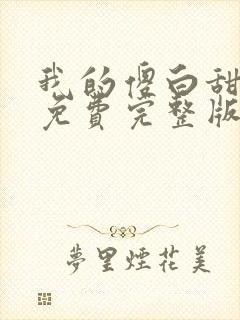 我的傻白甜
免费完整版
夢里煙花美